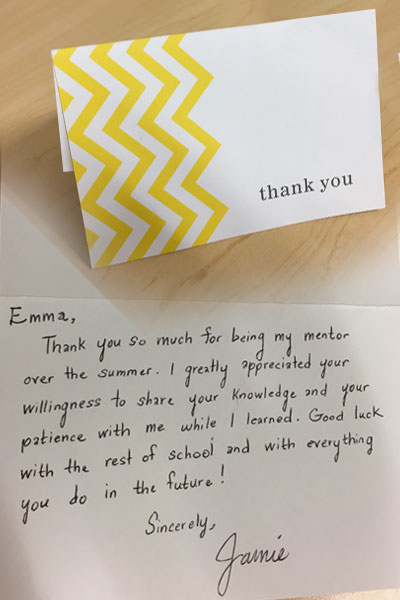 thank you
Emma,
Thank you so much for being my mentor
over the summer. I greatly appreciated your
willingness to share your knowledge and your
patience with me while I learned. Good luck
with the rest of school and with everything
you do in the future!
Sincerely,
Jamie